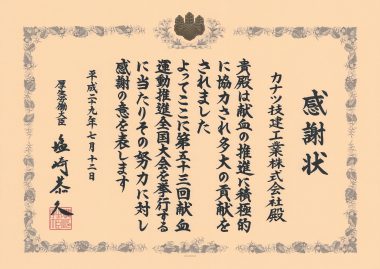 感謝状
カナツ技建工業株式会社殿
貴殿は献血の推進に積極的
に協力され多大の貢献を
されました
よってここに第五十三回献血
運動推進全国大会を挙行する
に当たりその努力に対し
感謝の意を表します
平成二十九年七月十二日
厚生労働大臣
塩崎恭久